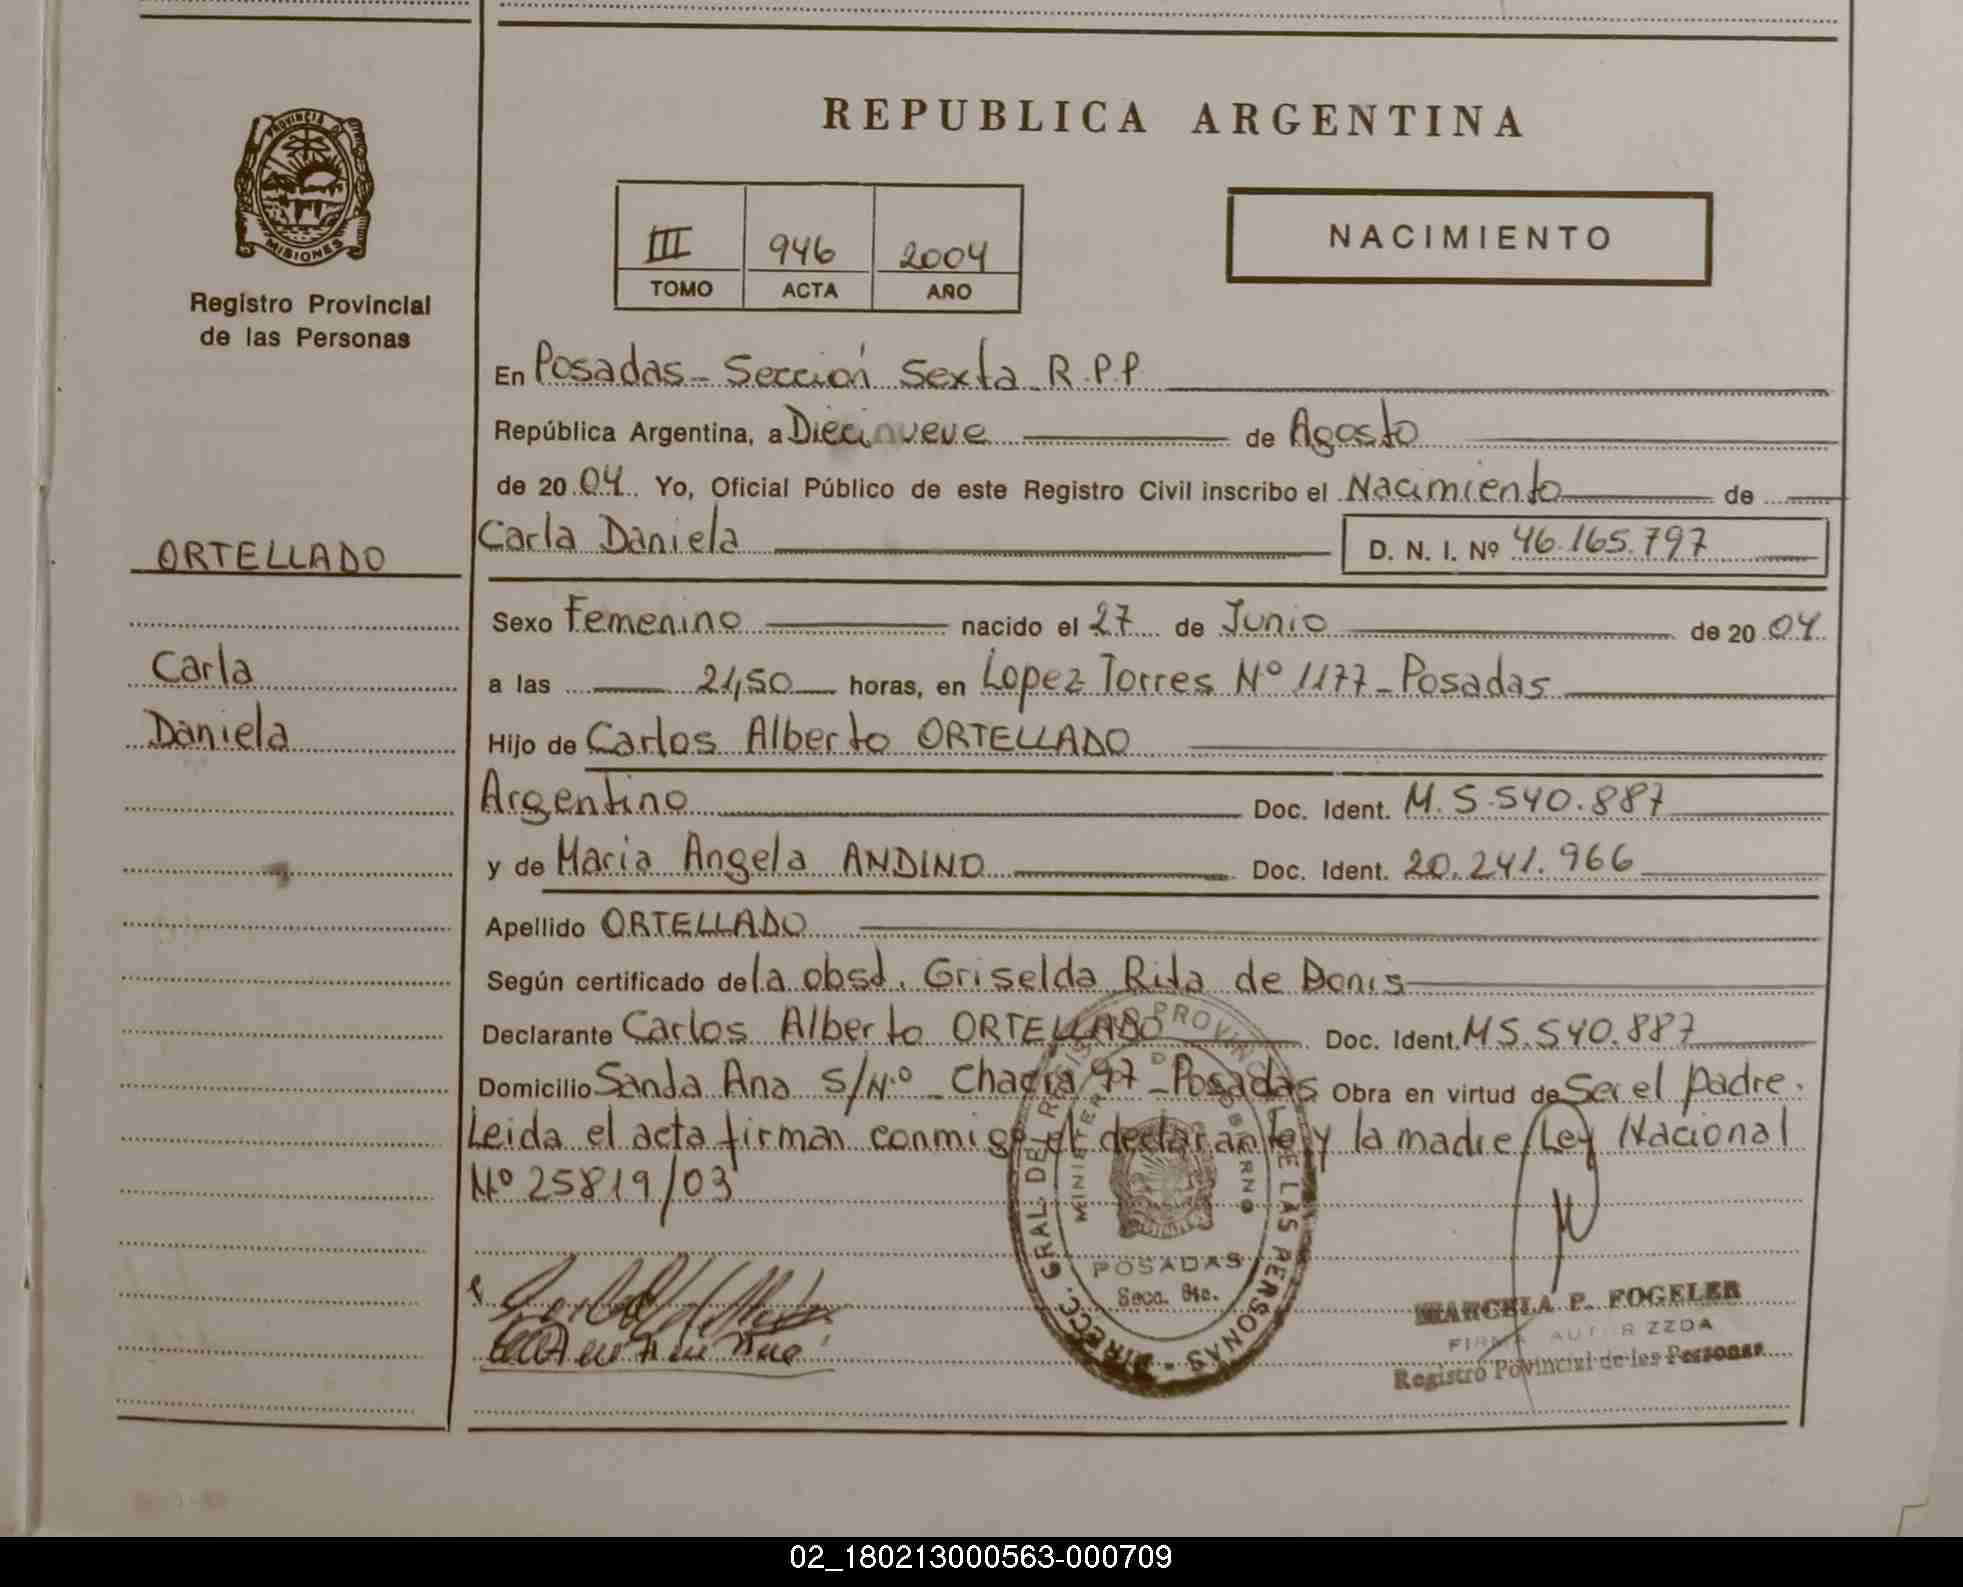 REPUBLICA ARGENTINA
PROVINCIA DE
MISIONES
Registro Provincial
de las Personas
III 946 2004
TOMO ACTA AÑO
NACIMIENTO
ORTELLADO
Carla
Daniela
En Posadas - Sección Sexta R.P.P
República Argentina, a Diecinueve de Agosto
de 2004. Yo, Oficial Público de este Registro Civil inscribo el Nacimiento de
Carla Daniela D. N. I. Nº 46.165.797
Sexo Femenino nacido el 27 de Junio de 2004
a las 21,50 horas, en Lopez Torres Nº 1177 - Posadas
Hijo de Carlos Alberto ORTELLADO
Argentino Doc. Ident. M. 5.540.887
y de Maria Angela ANDINO Doc. Ident. 20.241.966
Apellido ORTELLADO
Según certificado de la obsd. Griselda Rita de Donis
Declarante Carlos Alberto ORTELLADO Doc. Ident. M 5.540.887
Domicilio Santa Ana S/Nº - Chacra 97 - Posadas Obra en virtud de Ser el padre.
Leida el acta firman conmigo el declarante y la madre/Ley Nacional
Nº 25819/03
DIRECC. GRAL. DE REGISTRO PROVINCIAL DE LAS PERSONAS
MINISTERIO DE GOBIERNO
POSADAS
Secc. 6ta.
MARCELA P. FOGELER
FIRMA AUTORIZZDA
Registro Povincial de les Personas
02_180213000563-000709